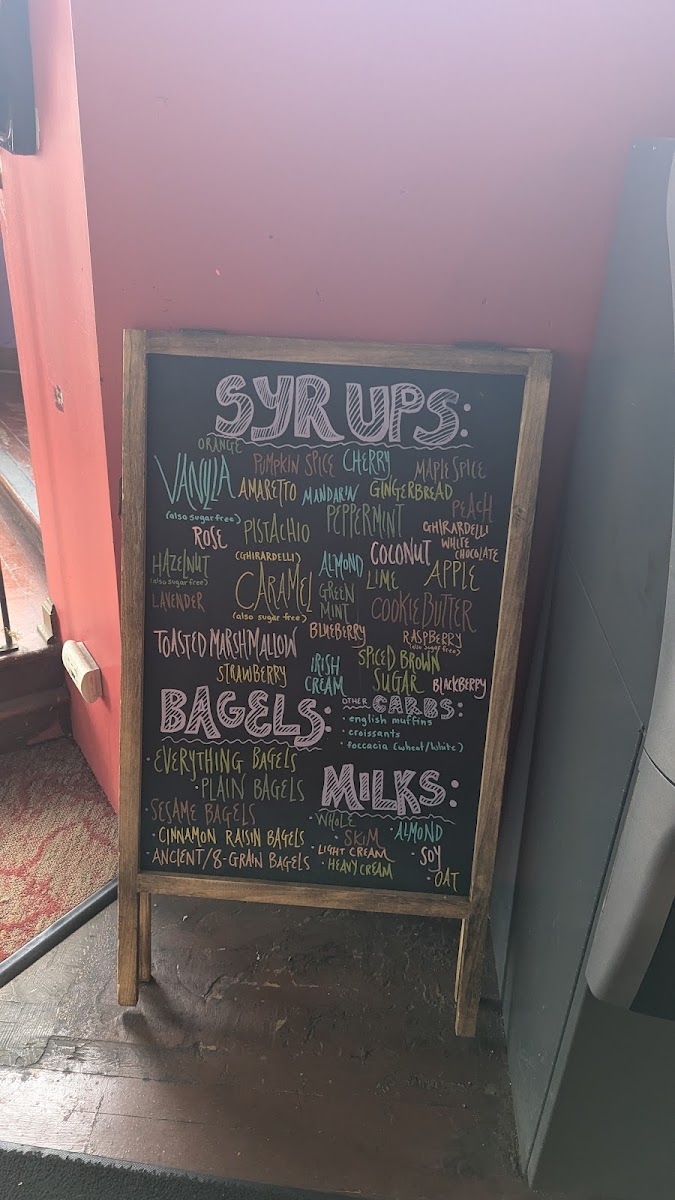 SYRUPS:
ORANGE
VANILLA
(also sugar free)
PUMPKIN SPICE
CHERRY
MAPLE SPICE
AMARETTO
MANDARIN
GINGERBREAD
PEACH
ROSE
PISTACHIO
PEPPERMINT
GHIRARDELLI
WHITE
CHOCOLATE
HAZELNUT
(also sugar free)
(GHIRARDELLI)
CARAMEL
(also sugar free)
ALMOND
COCONUT
LIME
APPLE
LAVENDER
GREEN
MINT
COOKIE BUTTER
TOASTED MARSHMALLOW
BLUEBERRY
RASPBERRY
(also sugar free)
STRAWBERRY
IRISH
CREAM
SPICED BROWN
SUGAR
BLACKBERRY
BAGELS:
· EVERYTHING BAGELS
· PLAIN BAGELS
· SESAME BAGELS
· CINNAMON RAISIN BAGELS
· ANCIENT/8-GRAIN BAGELS
OTHER CARBS:
· english muffins
· croissants
· foccacia (wheat/white)
MILKS:
· WHOLE
· SKIM
· ALMOND
· LIGHT CREAM
· SOY
· HEAVY CREAM
· OAT